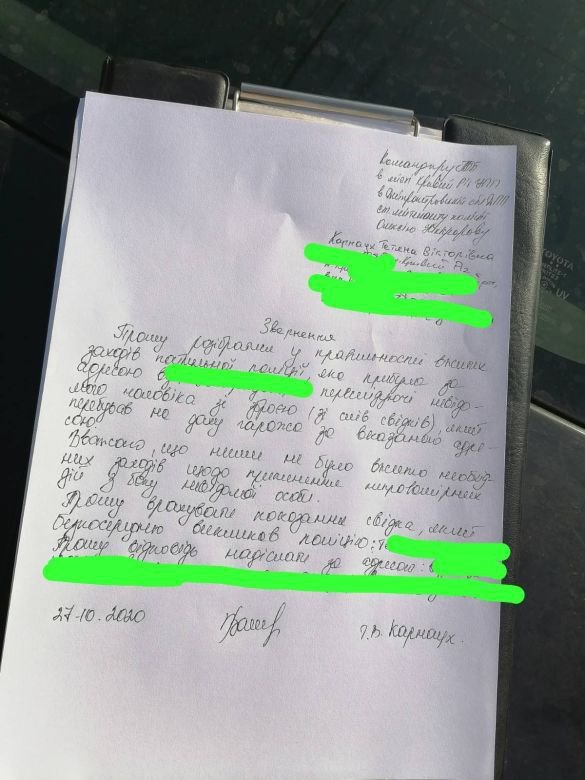 Командиру ТБ
в місті Кривий Ріг УПП
в Дніпропетровській обл. ДПП
ст. лейтенанту поліції
Олексію
Карнаух Тетяна Вікторівна
Звернення
Прошу розібратися у правильності вжитих
заходів патрульної поліції, яка прибула за
адресою переслідуючі невідо-
мого чоловіка зі зброєю (зі слів свідків), який
перебував на даху гаража за вказаною адре-
сою.
Вважаю, що ними не було вжито необхід-
них заходів щодо припинення неправомірних
дій з боку невідомої особи.
Прошу врахувати показання свідка, який
безпосередньо викликав поліцію:
Прошу відповідь надіслати за адресою:
27.10.2020 Т.В. Карнаух.
TOYOTA
UV